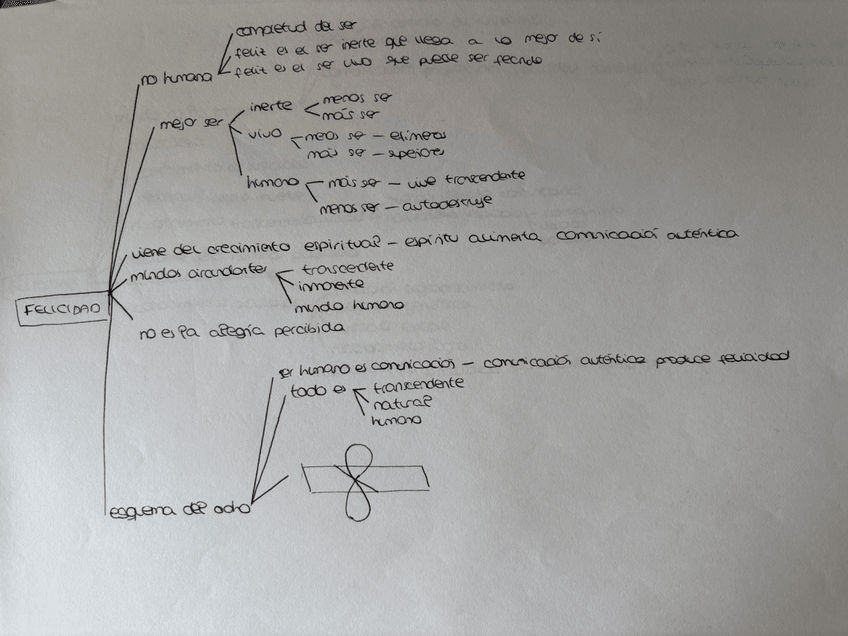 completud del ser
feliz es el ser inerte que llega a lo mejor de sí
no humana
feliz es el ser vivo que puede ser fecundo
inerte
menos ser
más ser
mejor ser
vivo
menos ser – efímeros
más ser – superiores
humano
más ser – vive trascendente
menos ser – autodestruye
viene del crecimiento espiritual – espíritu alimenta comunicación auténtica
mundos circundantes
trascedente
inmanente
mundo humano
FELICIDAD
no es la alegría percibida
ser humano es comunicación – comunicación auténtica produce felicidad
todo es
transcendente
natural
humano
esquema del ocho